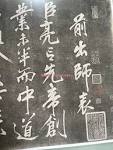 前出師表
臣亮言先帝創
業未半而中道